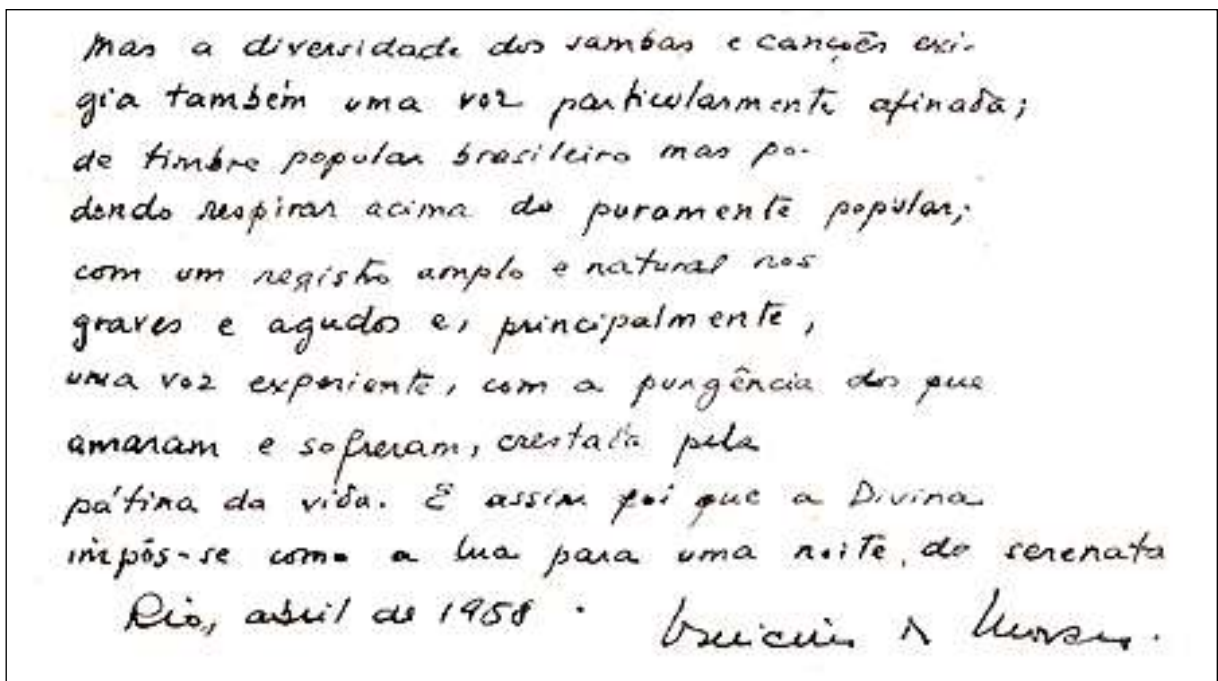 mas a diversidade dos sambas e canções exi-
gia também uma voz particularmente afinada;
de timbre popular brasileiro mas po-
dendo respirar acima do puramente popular;
com um registro amplo e natural nos
graves e agudos e, principalmente,
uma voz experiente, com a pungência dos que
amaram e sofreram, crestada pela
pátina da vida. E assim foi que a Divina
impôs-se como a lua para uma noite de serenata
Rio, abril de 1958. Vinicius de Moraes.